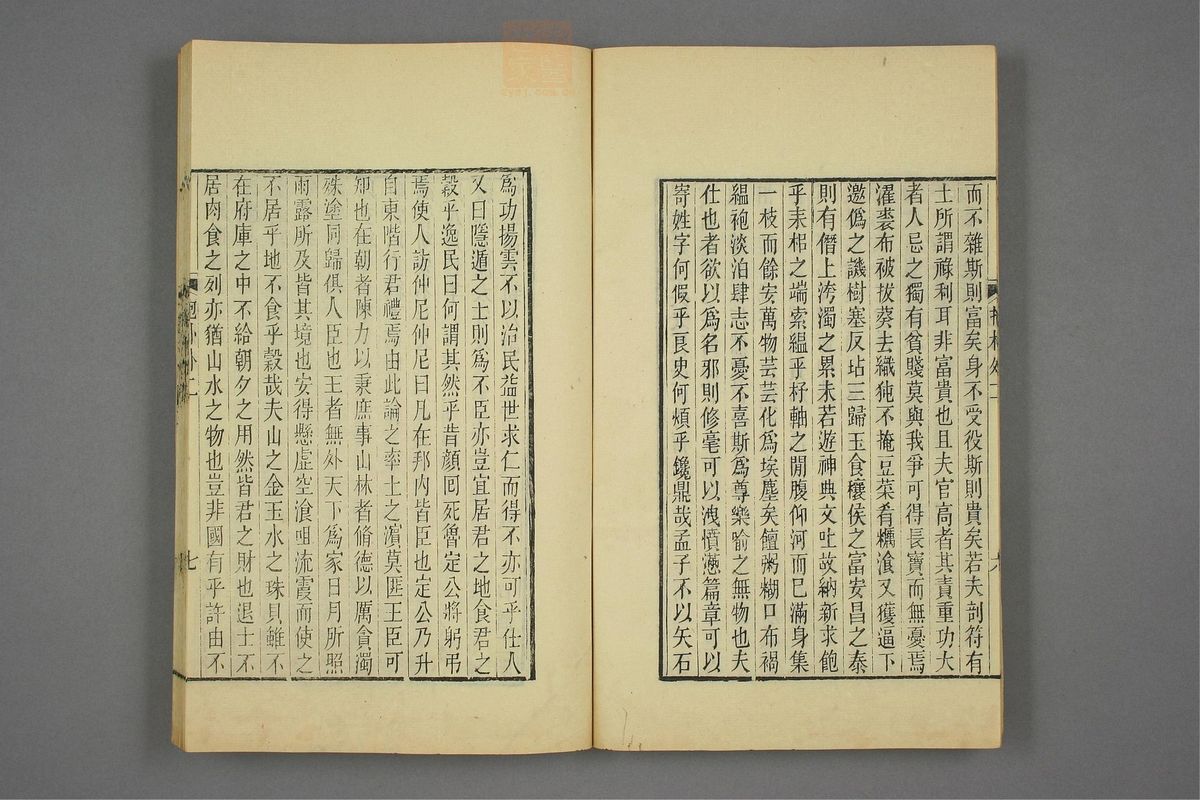 而不雜斯則富矣身不受役斯則貴矣若夫剖符有
土所謂祿利耳非富貴也且夫官高者其責重功大
者人忌之獨有貧賤莫與我爭可得長寶而無憂焉
濯裘布被拔葵去織㹠不掩豆菜肴糲飡又獲逼下
邀僞之譏樹塞反坫三歸玉食穰侯之富安昌之泰
則有僭上洿濁之累未若遊神典文吐故納新求飽
乎耒耜之端索縕乎杼軸之閒腹仰河而已滿身集
一枝而餘安萬物芸芸化爲埃塵矣饘粥糊口布褐
縕袍淡泊肆志不憂不喜斯爲尊樂喻之無物也夫
仕也者欲以爲名邪則修毫可以洩憤懣篇章可以
寄姓字何假乎良史何煩乎鑱鼎哉孟子不以矢石
爲功揚雲不以治民益世求仁而得不亦可乎仕人
又曰隱遁之士則爲不臣亦豈宜居君之地食君之
穀乎逸民曰何謂其然乎昔顔回死魯定公將躬弔
焉使人訪仲尼仲尼曰凡在邦內皆臣也定公乃升
自東階行君禮焉由此論之率土之濱莫匪王臣可
知也在朝者陳力以秉庶事山林者脩德以厲貪濁
殊塗同歸俱人臣也王者無外天下爲家日月所照
雨露所及皆其境也安得懸虛空飡咀流霞而使之
不居乎地不食乎穀哉夫山之金玉水之珠貝雖不
在府庫之中不給朝夕之用然皆君之財也退士不
居肉食之列亦猶山水之物也豈非國有乎許由不
七